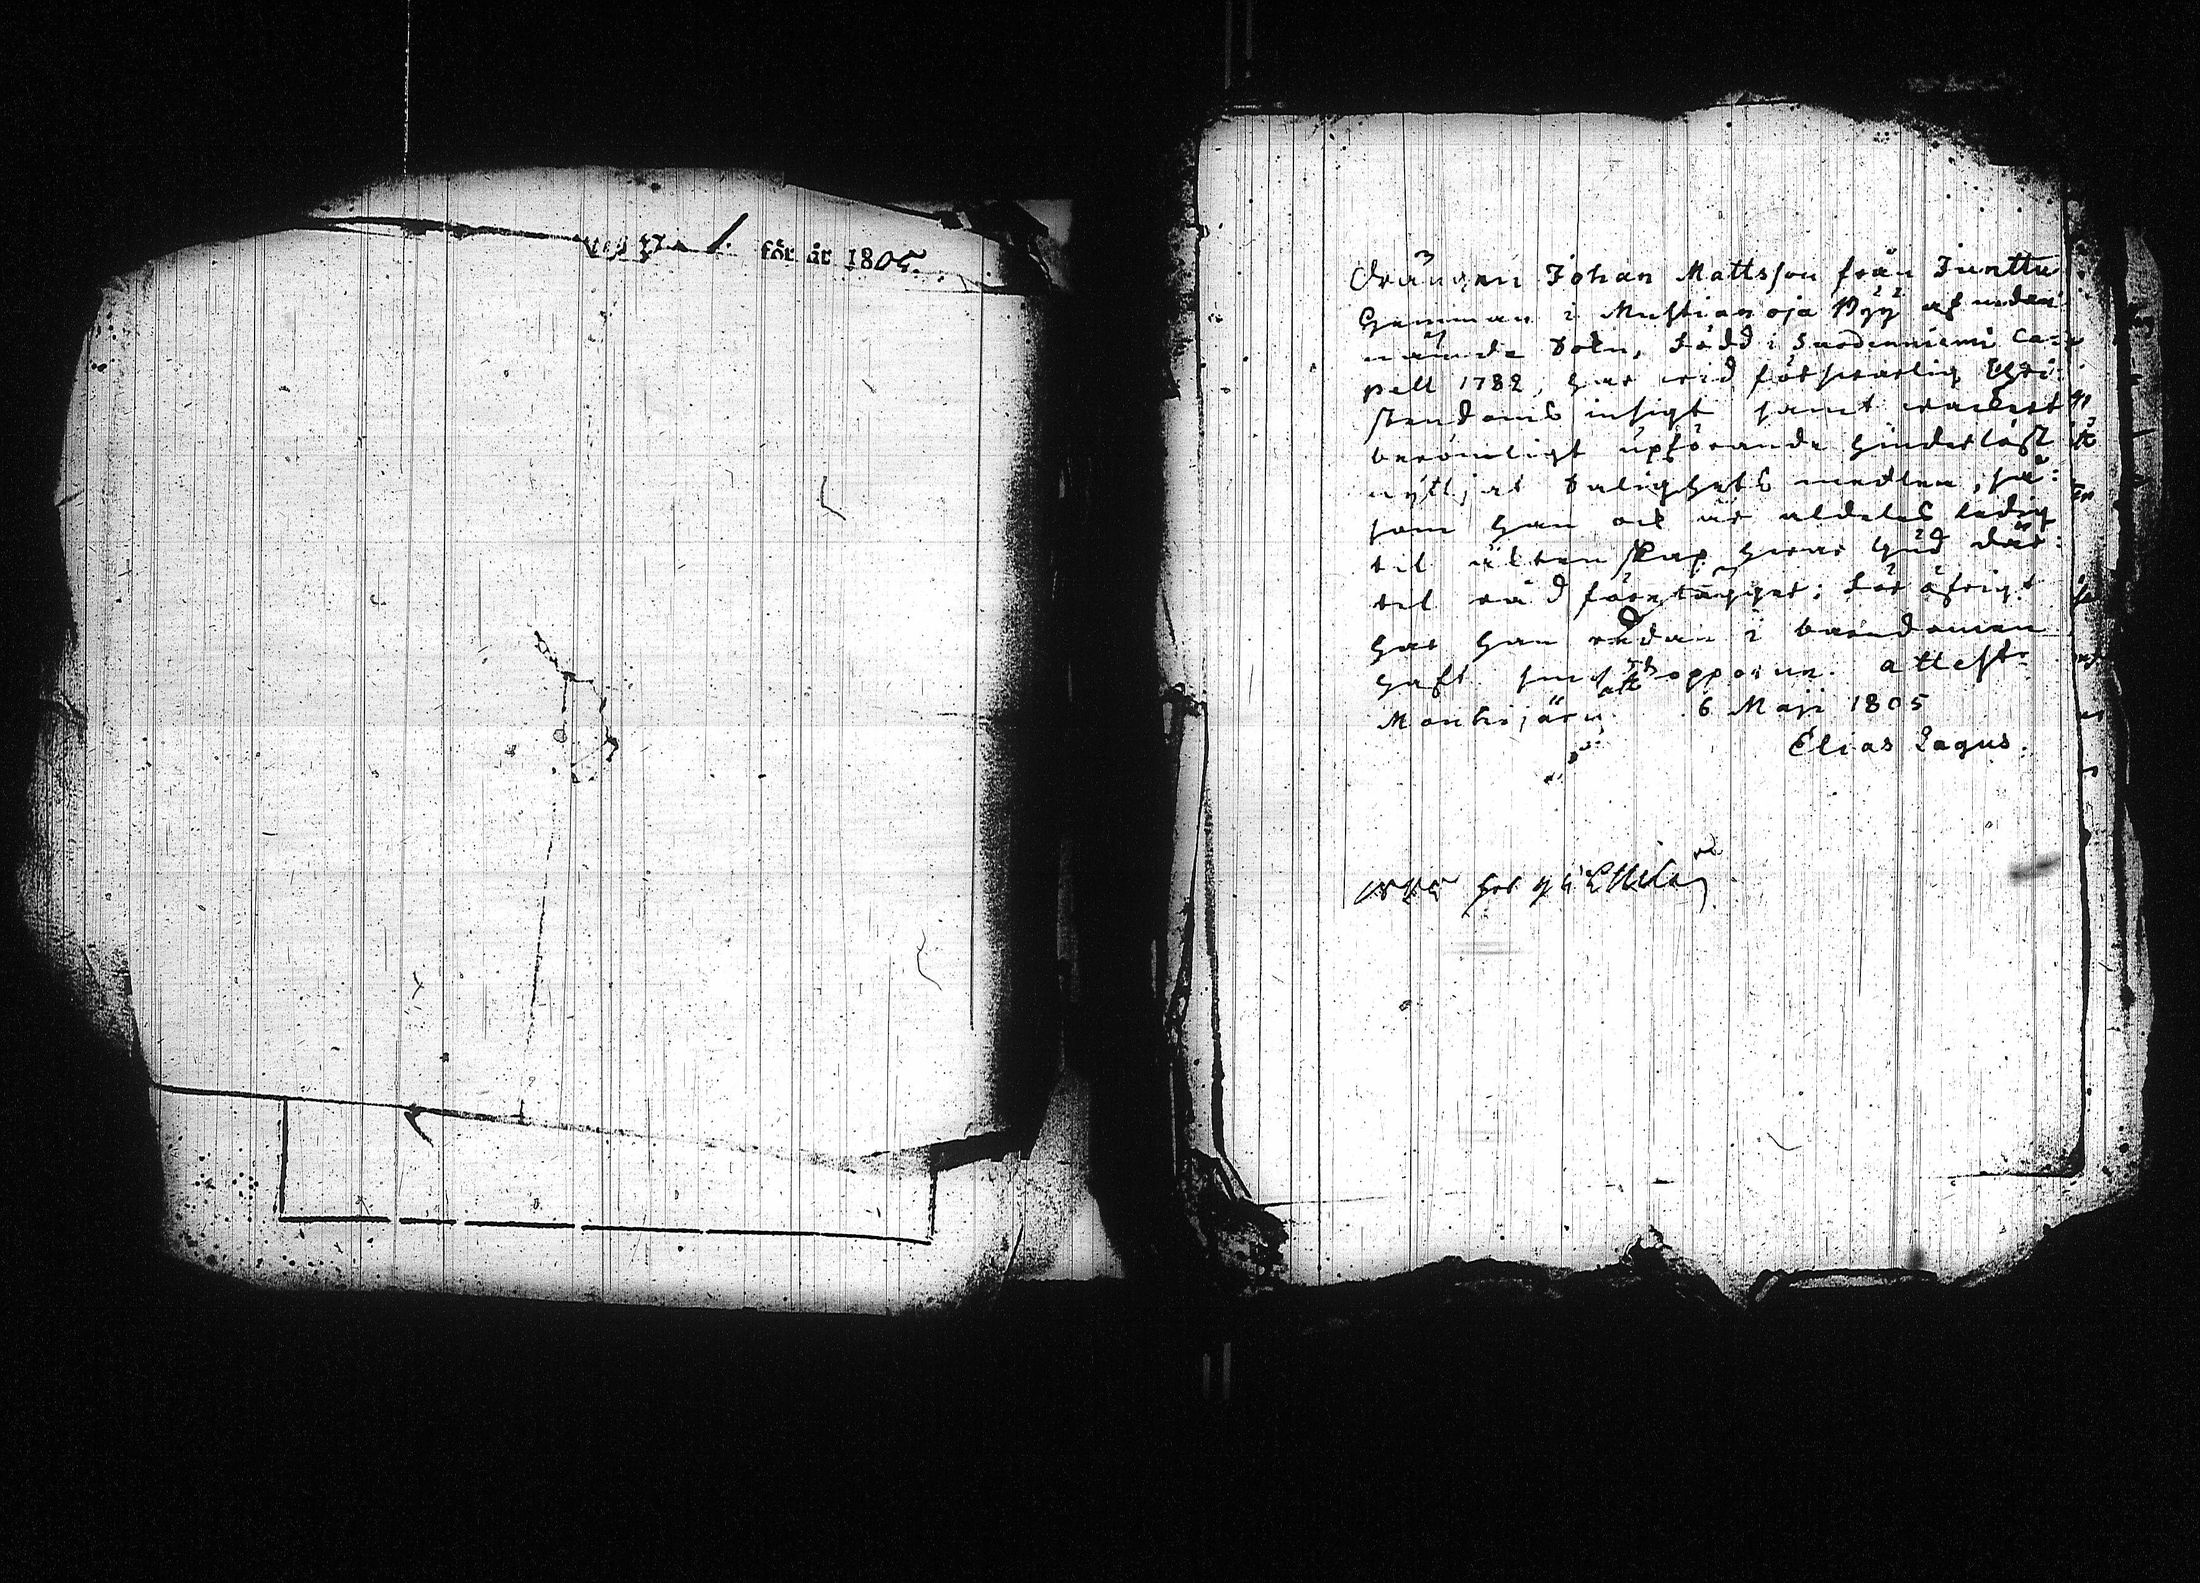 för år 1805.
Drängen Johan Mattsson från Junttu
Hemman i Mustianoja Byy af nedan
nämde Sokn, född i Suodenniemi Ca=
pell 1782, har vid försvarlig Chri
stendoms insigt samt
berömligt upförande hinderlöst
nyttjat Salighets medlen, så:
som han ock är aldeles ledig
til äktenskap, hvar Gud där:
til råd förelägger; för öfrigt
har han redan i barndomen
haft kopporna. attest:
Mouhijärvi 6 Maji 1805
Elias Lagus.